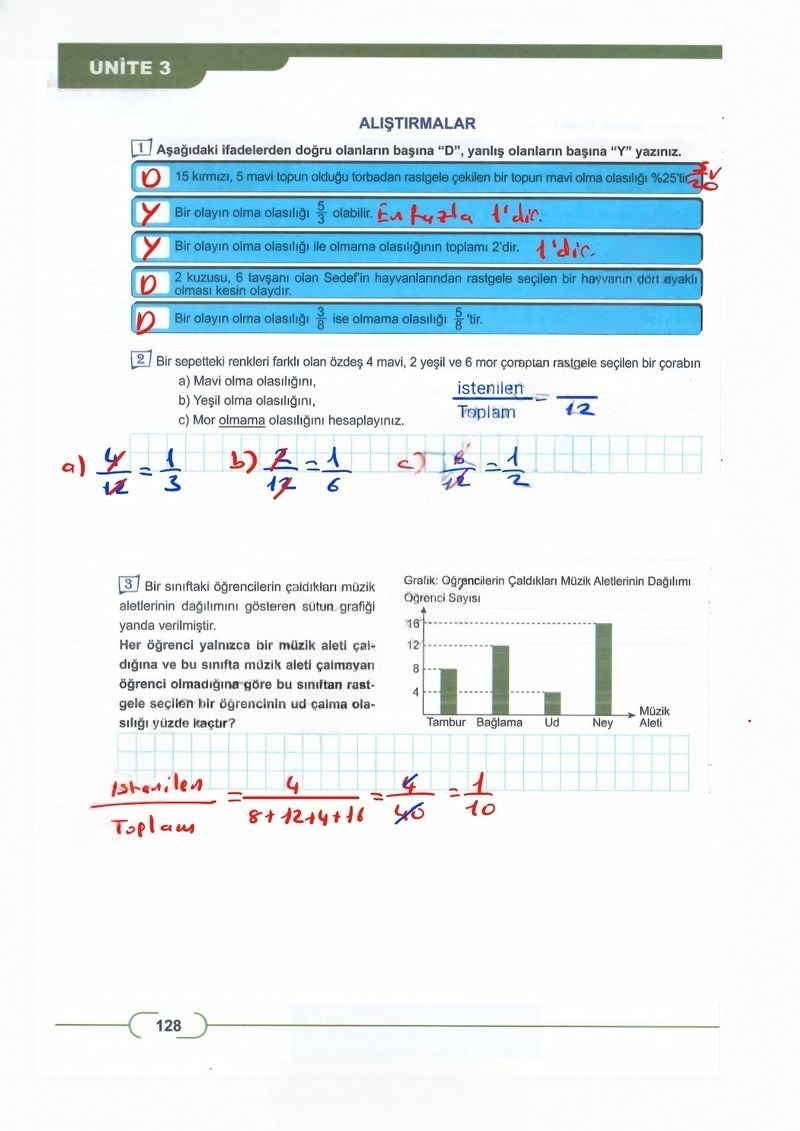 UNİTE 3
ALIŞTIRMALAR
1 Aşağıdaki ifadelerden doğru olanların başına “D”, yanlış olanların başına “Y” yazınız.
D 15 kırmızı, 5 mavi topun olduğu torbadan rastgele çekilen bir topun mavi olma olasılığı %25'tir. 5/20 ✓
Y Bir olayın olma olasılığı 5/3 olabilir. En fazla 1'dir.
Y Bir olayın olma olasılığı ile olmama olasılığının toplamı 2'dir. 1'dir.
D 2 kuzusu, 6 tavşanı olan Sedef'in hayvanlarından rastgele seçilen bir hayvanın dört ayaklı
olması kesin olaydır.
D Bir olayın olma olasılığı 3/8 ise olmama olasılığı 5/8 'tir.
2 Bir sepetteki renkleri farklı olan özdeş 4 mavi, 2 yeşil ve 6 mor çoraptan rastgele seçilen bir çorabın
a) Mavi olma olasılığını,
b) Yeşil olma olasılığını,
c) Mor olmama olasılığını hesaplayınız.
istenilen/Toplam = /12
a) 4/12 = 1/3 b) 2/12 = 1/6 c) 6/12 = 1/2
3 Bir sınıftaki öğrencilerin çaldıkları müzik
aletlerinin dağılımını gösteren sütun grafiği
yanda verilmiştir.
Her öğrenci yalnızca bir müzik aleti çal-
dığına ve bu sınıfta müzik aleti çalmayan
öğrenci olmadığına göre bu sınıftan rast-
gele seçilen bir öğrencinin ud çalma ola-
sılığı yüzde kaçtır?
Grafik: Öğrencilerin Çaldıkları Müzik Aletlerinin Dağılımı
Öğrenci Sayısı
16
12
8
4
Tambur Bağlama Ud Ney
Müzik
Aleti
istenilen/Toplam = 4/8+12+4+16 = 4/40 = 1/10
128